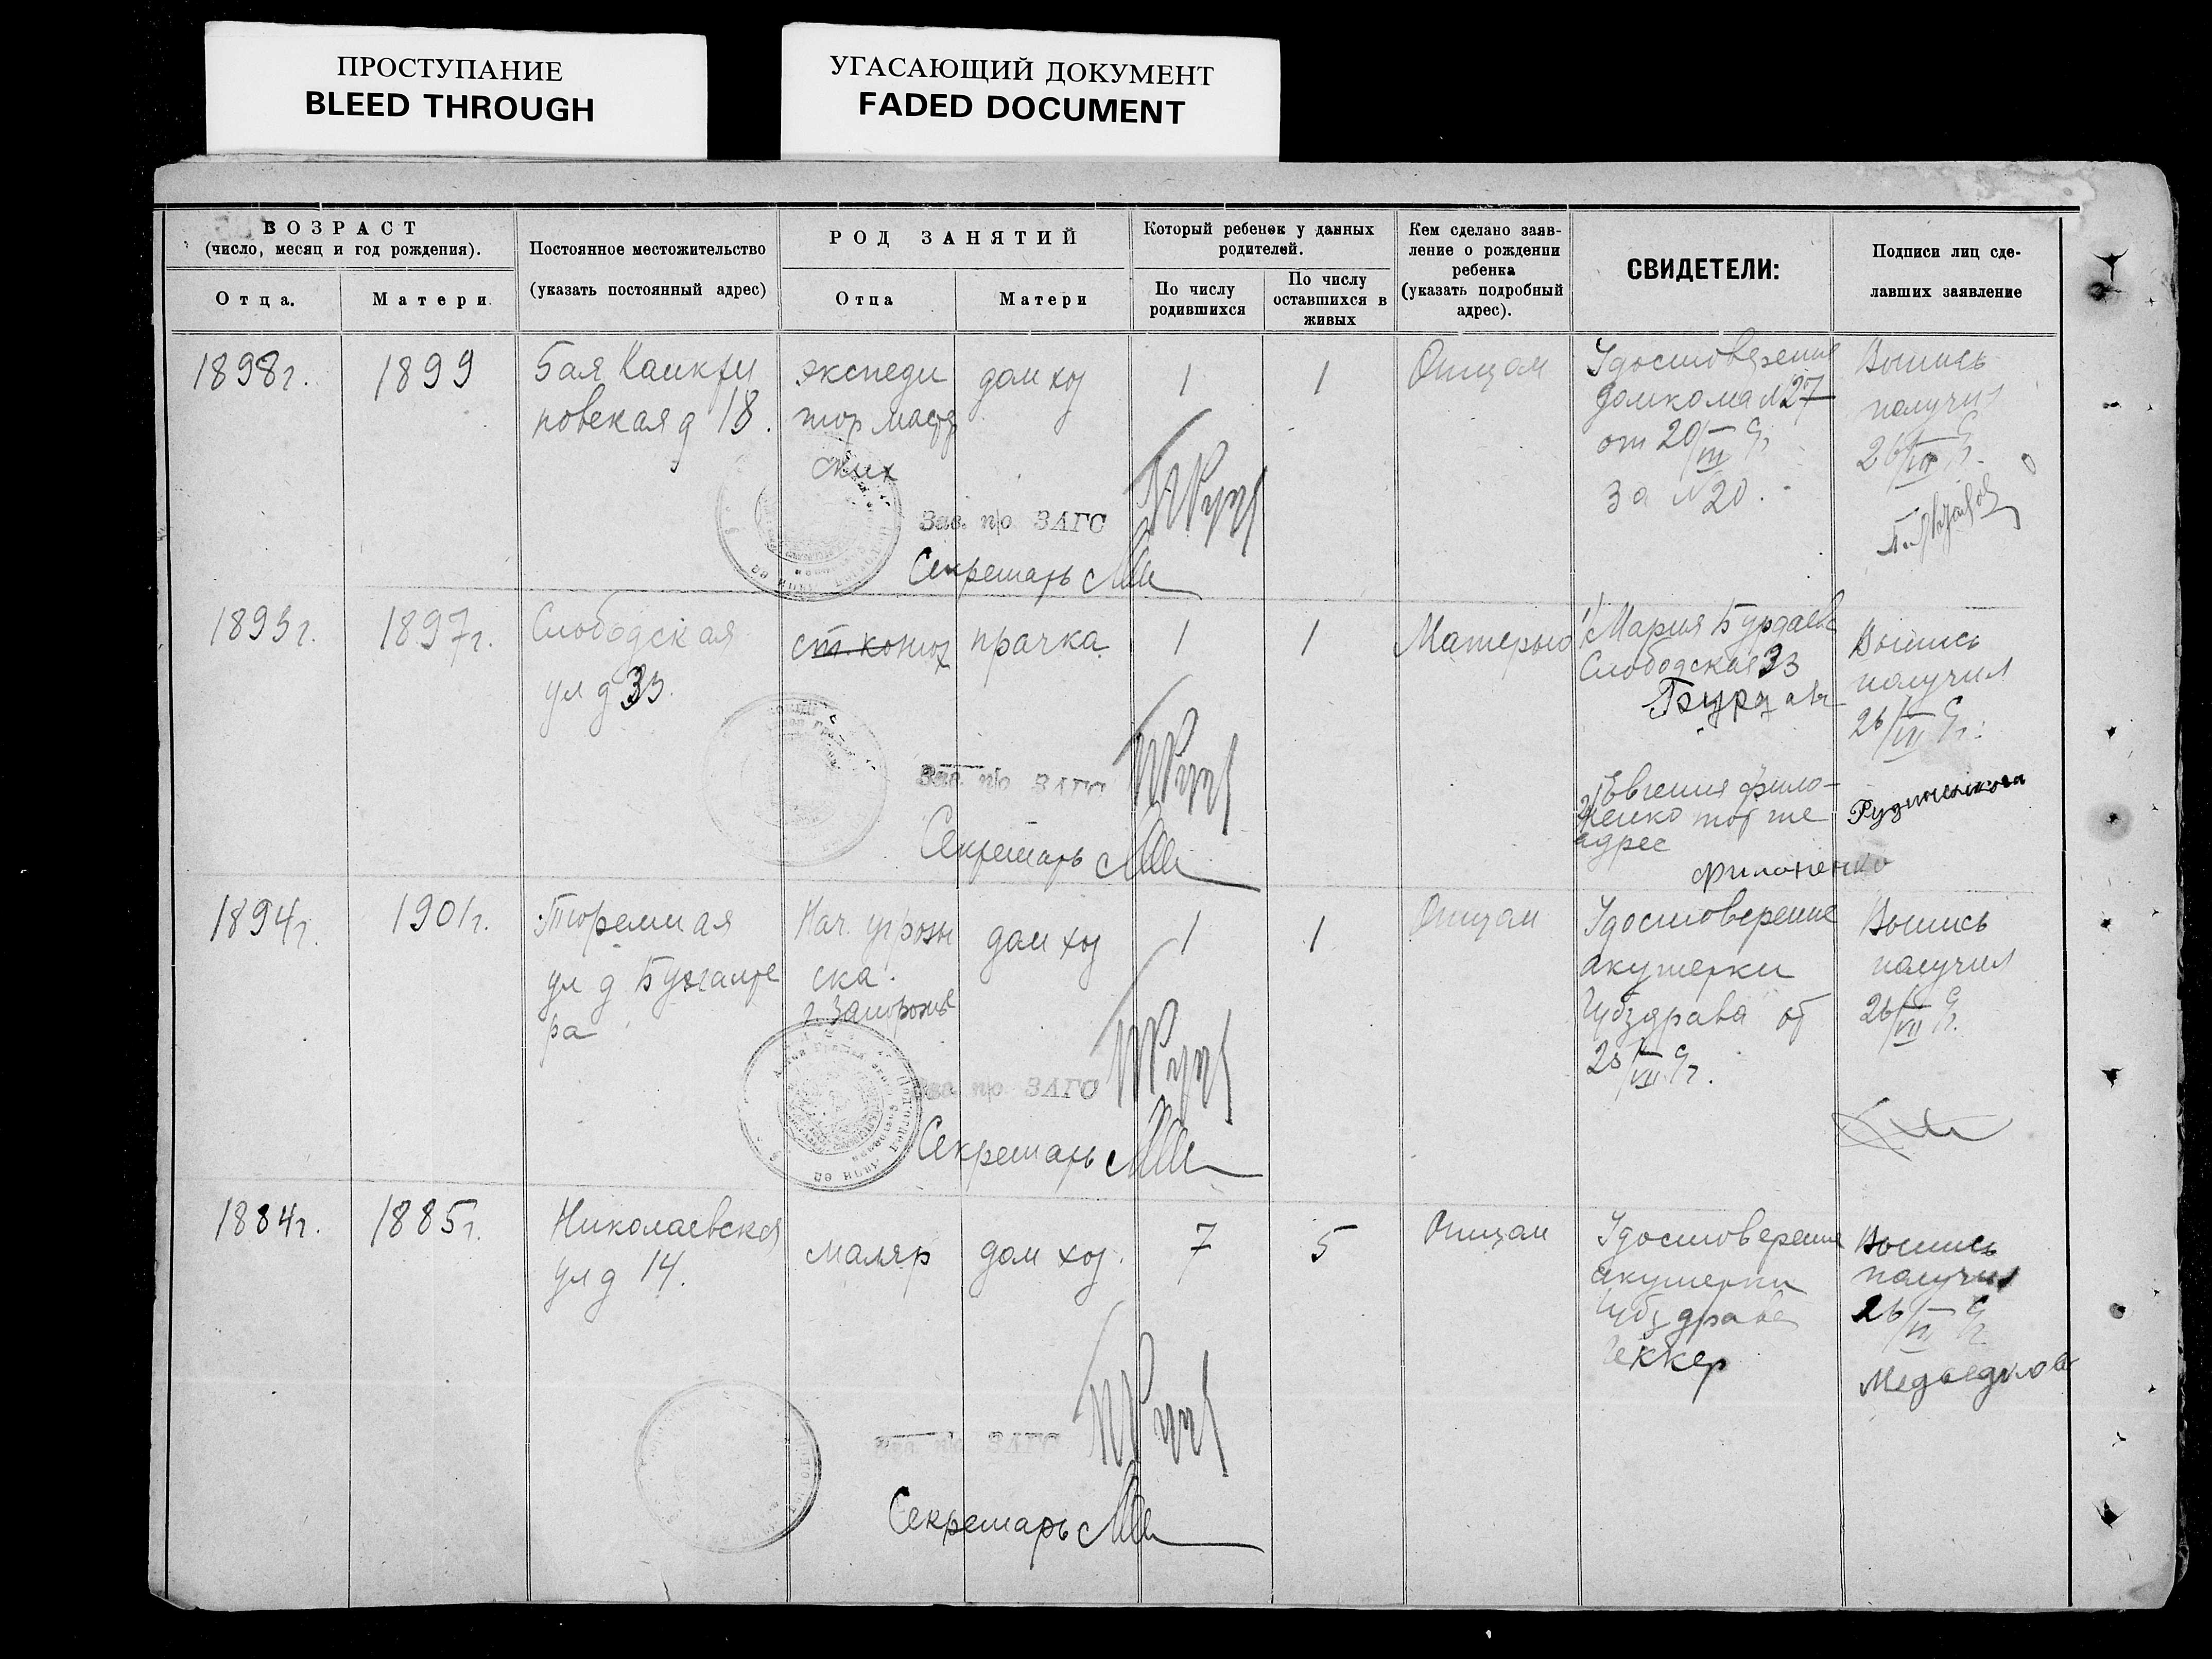 ПРОСТУПАНИЕ
BLEED THROUGH
УГАСАЮЩИЙ ДОКУМЕНТ
FADED DOCUMENT
ВОЗРАСТ
(число, месяц и год рождения).
Отца.
Матери
Постоянное местожительство
(указать постоянный адрес)
РОД ЗАНЯТИЙ
Отца
Матери
Который ребенок у данных
родителей.
По числу
родившихся
По числу
оставшихся в
живых
Кем сделано заяв-
ление о рождении
ребенка
(указать подробный
адрес).
СВИДЕТЕЛИ:
Подписи лиц сде-
лавших заявление
1898г.
1899
Бая
новская д 18.
экспеди
тор
ских
дом хоз
1
1
Отцом
Удостоверение
домкома № 27
от 20/VII
за № 20.
Выпись
получил
26/VII
Зав. п/о ЗАГС
Секретарь
1893г.
1897г.
Слободская
ул д 33.
прачка
1
1
Матерью
1) Мария Бурдаева
Слободская 33
2) Евгения Фило-
ненко тот же
адрес
Филоненко
Выпись
получил
26/VII
Зав. п/о ЗАГС
Секретарь
1894г.
1901г.
Тюремная
ул д Бухгалте
ра
Нач. угрозы
ска.
г. Запорожье
дом хоз
1
1
Отцом
Удостоверение
акушерки
Губздрава от
23/VII
Выпись
получил
26/VII
Зав. п/о ЗАГС
Секретарь
1884г.
1885г.
Николаевская
ул д 14.
маляр
дом хоз.
7
5
Отцом
Удостоверение
акушерки
Губздрава
Геккер
Выпись
получил
26/VII
Зав. п/о ЗАГС
Секретарь